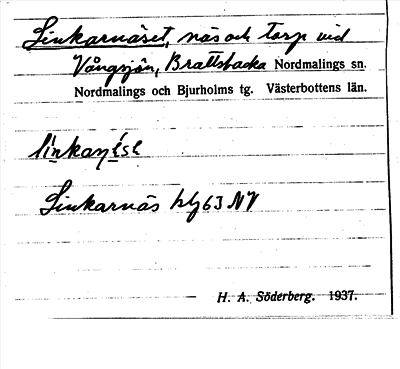 Linkarnäset, näs och torp vid
Vångsjön, Brattsbacka Nordmalings sn.
Nordmalings och Bjurholms tg. Västerbottens län.
Linkarnäs blg 63 NV
H. A. Söderberg. 1937.